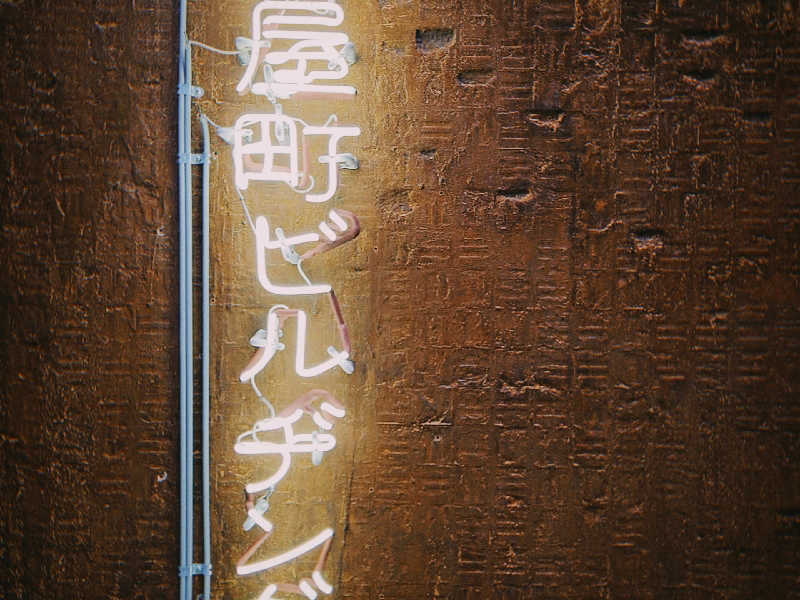 屋町ビルヂン